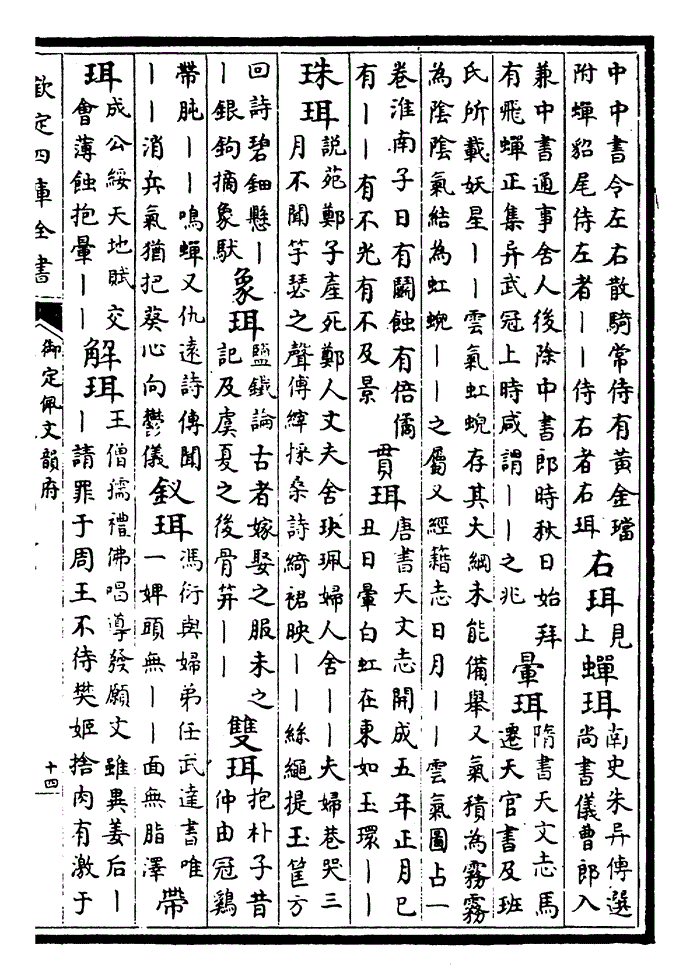 中中書令左右散騎常侍有黃金璫
附蟬貂尾侍左者——侍右者右珥
右珥
見
上
蟬珥
南史朱异傳選
尚書儀曹郎入
兼中書通事舍人後除中書郎時秋日始拜
有飛蟬正集异武冠上時咸謂——之兆
暈珥
隋書天文志馬
遷天官書及班
氏所載妖星——雲氣虹蜺存其大綱未能備舉又氣積為霧霧
為陰陰氣結為虹蜺——之屬又經籍志日月——雲氣圖占一
卷淮南子日有鬭蝕有倍僪
有——有不光有不及景
貫珥
唐書天文志開成五年正月巳
丑日暈白虹在東如玉環——
珠珥
說苑鄭子產死鄭人丈夫舍玦珮婦人舍——夫婦巷哭三
月不聞竽瑟之聲傅縡採桑詩綺裙映——絲繩提玉筐方
回詩碧鈿懸—
—銀鉤摘象馱
象珥
鹽鐵論古者嫁娶之服未之
記及虞夏之後骨笄——
雙珥
抱朴子昔
仲由冠鷄
帶肫——鳴蟬又仇遠詩傳聞
——消兵氣猶把葵心向鬱儀
釵珥
馮衍與婦弟任武達書唯
一婢頭無——面無脂澤
帶
珥
成公綏天地賦交
會薄蝕抱暈——
解珥
王僧孺禮佛唱導發願文雖異姜后—
—請罪于周王不待樊姬捨肉有激于
欽定四庫全書
御定佩文韻府
十四